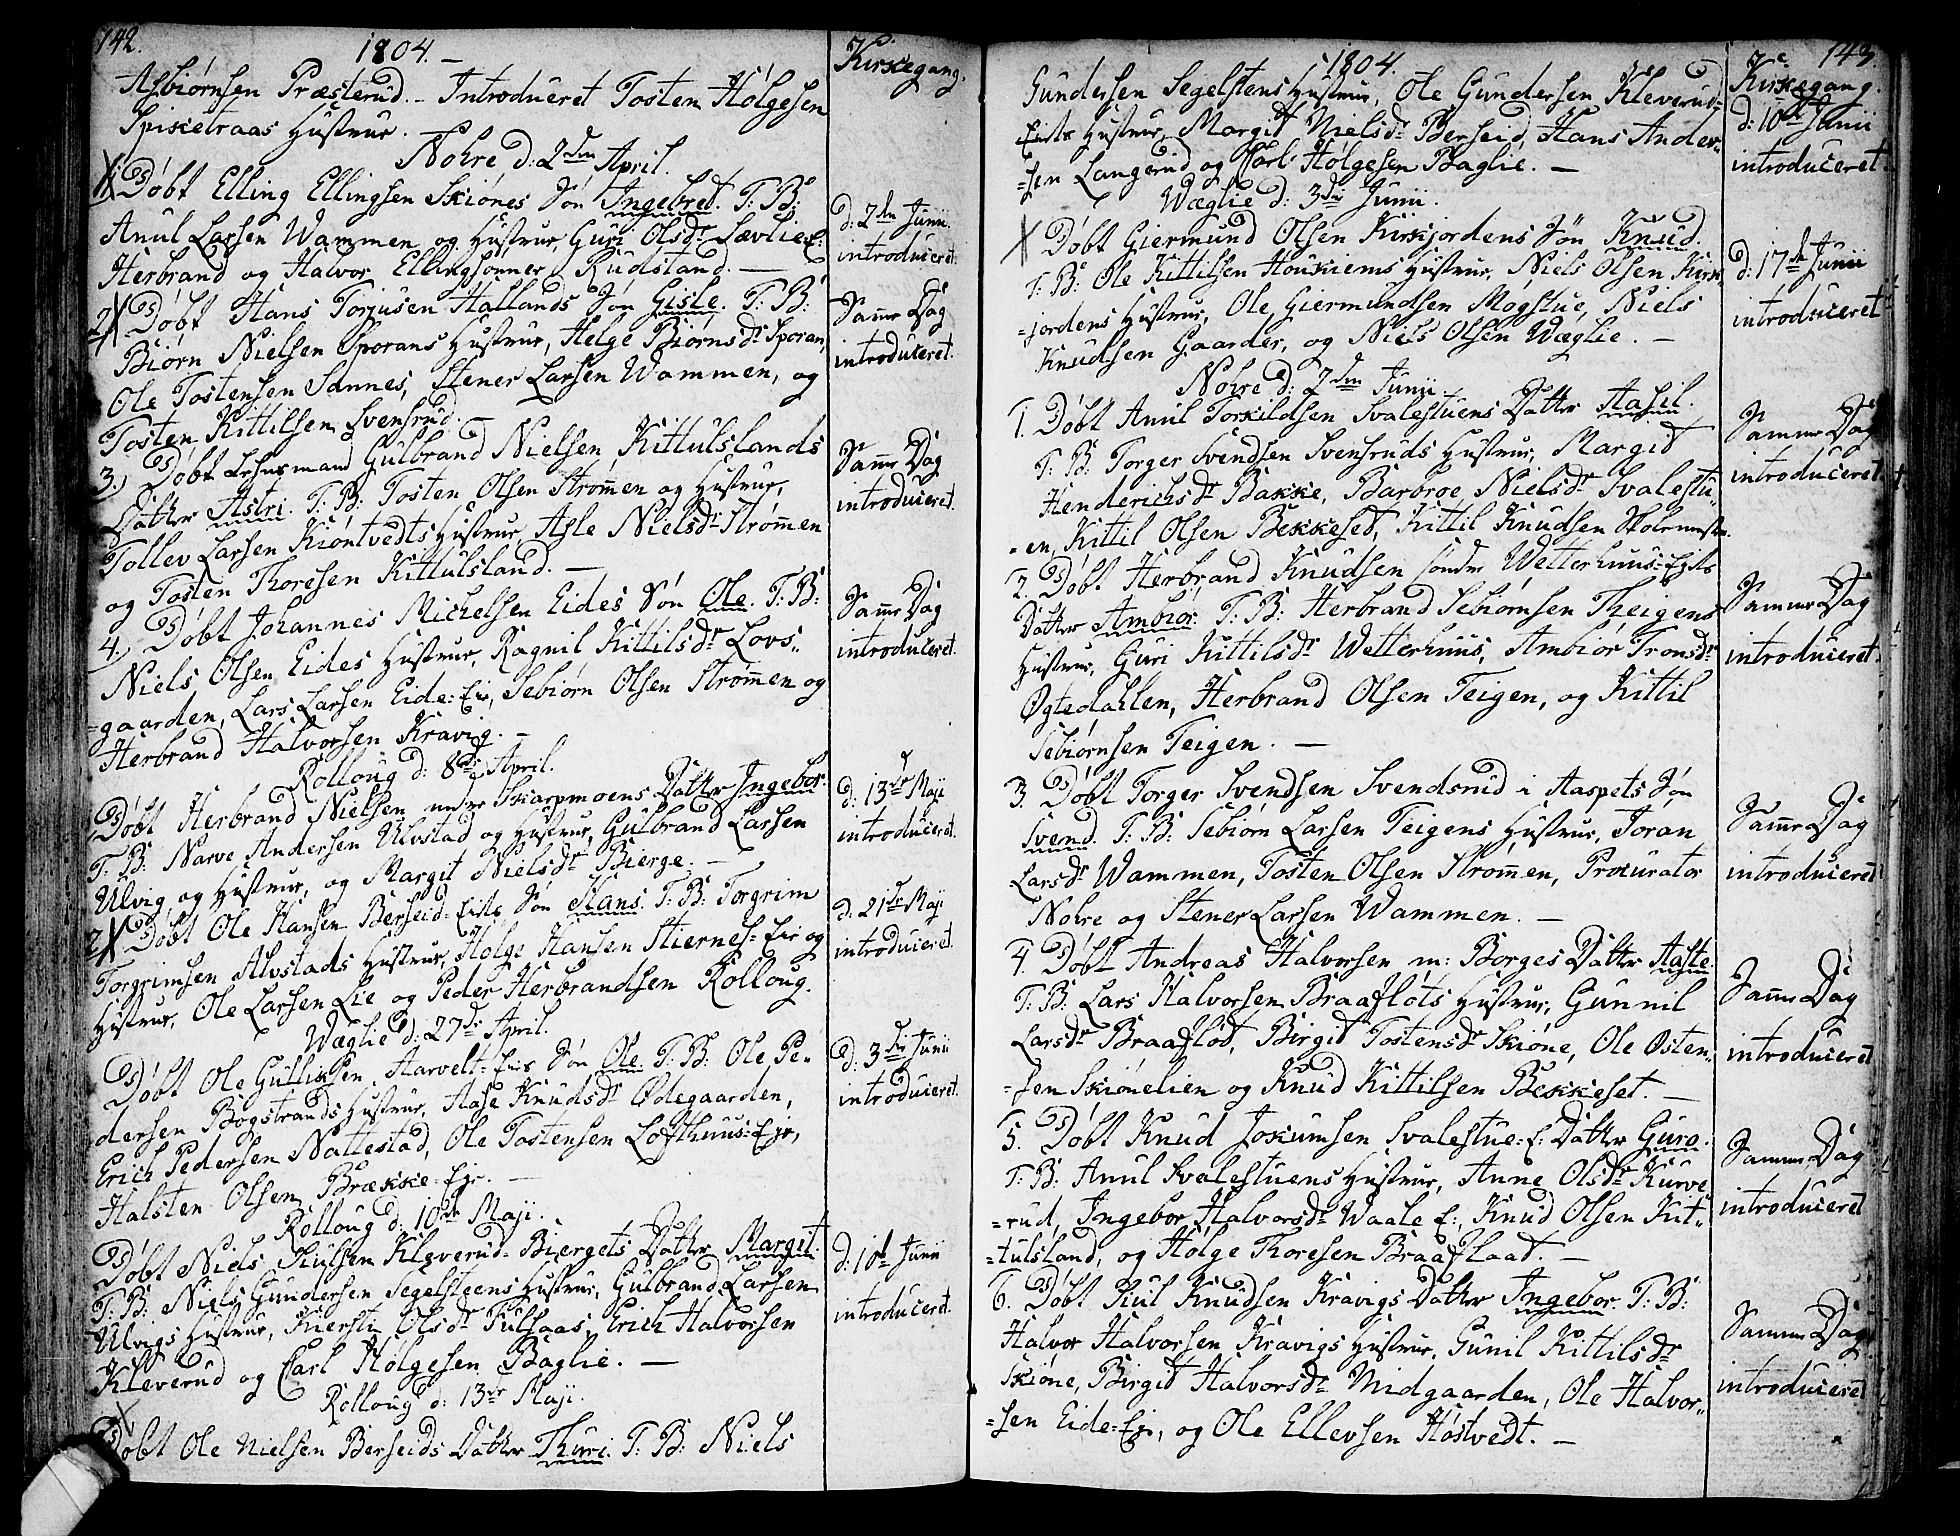 142.
1804.
Kirkegang.
Asbiørnsen Præsterud. Introduceret Tosten Holgesen
Spisetraas Hustrue.
Nohre d: 2den April.
1. Døbt Elling Ellingsen Skiønes Søn Ingebret. T: B:
Anul Larsen Wammen og Hustrue, Guri Olsdr Sævlie E:
Herbrand og Halvor Ellingsønner Rudstand. —
d: 2den Junii
introduceret.
2. Døbt Hans Torjusen Hallands Søn Gisle. T: B:
Biørn Nielsen Sporans Hustrue, Helge Biørnsdr Sporan,
Ole Tostensen Sannes, Stener Larsen Wammen, og
Tosten Kittilsen Svensrud. —
Samme Dag
introduceret.
3. Døbt Lehnsmand Gulbrand Nielsen Kittulslands
Datter Astri. T: B: Tosten Olsen Strømmen og Hustrue,
Tollev Larsen Kiøntvedts Hustrue, Asle Nielsdr Strømmen
og Tosten Thoresen Kittulsland. —
Samme Dag
introduceret.
4. Døbt Johannes Michelsen Eides Søn Ole. T: B:
Niels Olsen Eides Hustrue, Ragnil Kittilsdr Lovs-
=gaarden, Lars Larsen Eide=Eie, Sebiørn Olsen Strømmen og
Herbrand Halvorsen Kravig. —
Samme Dag
introduceret.
Rolloug d: 8de April.
Døbt Herbrand Nielsen under Skarpmoens Datter Ingebor.
T: B: Narve Andersen Ulvstad og Hustrue, Gulbrand Larsen
Ulvig og Hustrue, og Margit Nielsdr Bierge. —
d: 13de Maji
introduceret.
2. Døbt Ole Hansen Berseid=Eiets Søn Hans. T: B: Torgrim
Torgrimsen Alvstads Hustrue, Holge Hansen Stiernes=Eie og
Hustrue, Ole Larsen Lie og Peder Herbrandsen Rolloug.
d: 21de Maji
introduceret.
Wæglie d: 27de April.
Døbt Ole Gulliksen Harvelt=Eies Søn Ole. T: B: Ole Pe-
dersen Bogstrands Hustrue, Aase Knudsdr Ødegaarden,
Erich Pedersen Nattestad, Ole Tostensen Lofthuus=Eje,
Halsten Olsen Brække=Eje. —
d: 3die Junii
introduceret.
Rolloug d: 10de Maji.
Døbt Niels Siulsen Kleverud=Biergets Datter Margit.
T: B: Niels Gundersen Segelsteens Hustrue, Gulbrand Larsen
Ulvigs Hustrue, Kiersti Olsdr Fulsaas, Erich Halvorsen
Kleverud og Carl Holgesen Baglie. —
d: 10de Junii
introduceret.
Rolloug d: 13de Maji.
Døbt Ole Nielsen Berseids Datter Thuri. T: B: Niels
143.
1804.
Kirkegang.
Gundersen Segelstens Hustrue, Ole Gundersen Kleverud=
Eiets Hustrue, Margit Nielsdr Berseid, Hans Ander-
=sen Langerud og Carl Holgesen Baglie. —
d: 10de Junii
introduceret.
Wæglie d: 3die Junii.
Døbt Giermund Olsen Kirkjordens Søn Knud.
T: B: Ole Kittilsen Houkiems Hustrue, Niels Olsen Kirk-
=jordens Hustrue, Ole Giermundsen Mogstue, Niels
Knudsen Gaarder, og Niels Olsen Wæglie. —
d: 17de Junii
introduceret
Nohre d: 2den Junii.
1. Døbt Anul Torkildsen Svalestuens Datter Aasil.
T: B: Torger Svendsen Svensruds Hustrue, Margit
Henderichsdr Bakke, Barbroe Nielsdr Svalestu-
=en, Kittil Olsen Bekkeset, Kittil Knudsen Skolemester.
Samme Dag
introduceret.
2. Døbt Herbrand Knudsen søndre Wetterhuus=Ejets
Datter Ambior. T: B: Herbrand Sebiørnsen Theigens
Hustrue, Guri Kittilsdr Wetterhuus, Ambior Tronsdr
Øgtedahlen, Herbrand Olsen Teigen, og Kittil
Sebiørnsen Teigen. —
Samme Dag
introduceret.
3. Døbt Torger Svendsen Svendsrud i Aaspets Søn
Svend. T: B: Sebiørn Larsen Teigens Hustrue, Joran
Larsdr Wammen, Tosten Olsen Strømmen, Prokurator
Nohre og Stener Larsen Wammen. —
Samme Dag
introduceret
4. Døbt Andreas Halvorsen m: Borges Datter Aaste.
T: B: Lars Halvorsen Braafløts Hustrue, Gunnil
Larsdr Braafløt, Birgit Tostensdr Skiøne, Ole Østen-
=sen Skiønelien og Knud Kittilsen Bekkeset. —
Samme Dag
introduceret
5. Døbt Knud Jokumsen Svalestue=E: Datter Guro.
T: B: Anul Svalestuens Hustrue, Anne Olsdr Kurve-
=rud, Ingebor Halvorsdr Waale E:, Knud Olsen Kit-
=tulsland, og Holge Thoresen Braaflaat. —
Samme Dag
introduceret
6. Døbt Siul Knudsen Kravigs Datter Ingebor. T: B:
Halvor Halvorsen Kravigs Hustrue, Gunil Kittilsdr
Skiøne, Birgit Halvorsdr Midgaarden, Ole Halvor-
=sen Eide=Eje, og Ole Ellevsen Høstvedt. —
Samme Dag
introduceret